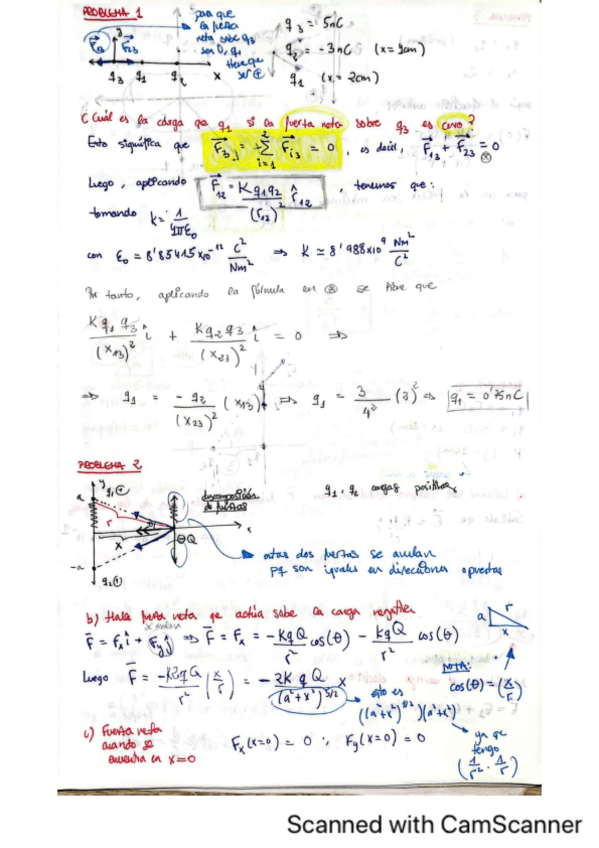 PROBLEMA 1
para que la fuerza neta sobre q3 sea 0, q1 tiene que ser ⊕
q3 = 5nC
q2 = -3nC (x=
q1 (x = 2cm)
F23
y
x
q3 q1 q2
¿Cuál es la carga de q1 si la fuerza neta sobre q3 es cero?
Esto significa que F3 = Σ(i=1, 2) Fi3 = 0, es decir, F13 + F23 = 0 ⊗
Luego, aplicando F12 = K q1q2 / (r12)² r̂12, tenemos que:
tomando K = 1/4πε0
con ε0 = 8'85415x10⁻¹² C²/Nm² ⇒ K ≃ 8'988x10⁹ Nm²/C²
Por tanto, aplicando la fórmula en ⊗ se tiene que
K q1 q3/(x13)² î + K q2 q3/(x23)² î = 0 ⇒
⇒ q1 = - q2/(x23)² (x13)² ⇒ q1 = 3/4² (2)² ⇒ q1 = 0'75nC
PROBLEMA 2
y
a
q1 ⊕
r
x
⊖Q
-a
q2 ⊕
descomposición de fuerzas
q1, q2 cargas positivas
estas dos fuerzas se anulan
pq son iguales en direcciones opuestas
b) Halle fuerza neta que actúa sobre la carga negativa
se anulan
F = Fx i + Fy j ⇒ F = Fx = -KqQ/r² cos(θ) - KqQ/r² cos(θ)
a r x
Luego F = -K2qQ/r² (x/r) = -2KqQ/(a²+x²)^3/2 x
NOTA:
cos(θ) = (x/r)
esto es
((a²+x²)^1/2)(a²+x²)
ya que tengo
(1/r² · 1/r)
c) Fuerza neta cuando se encuentra en x=0
Fx(x=0) = 0 ; Fy(x=0) = 0
Scanned with CamScanner